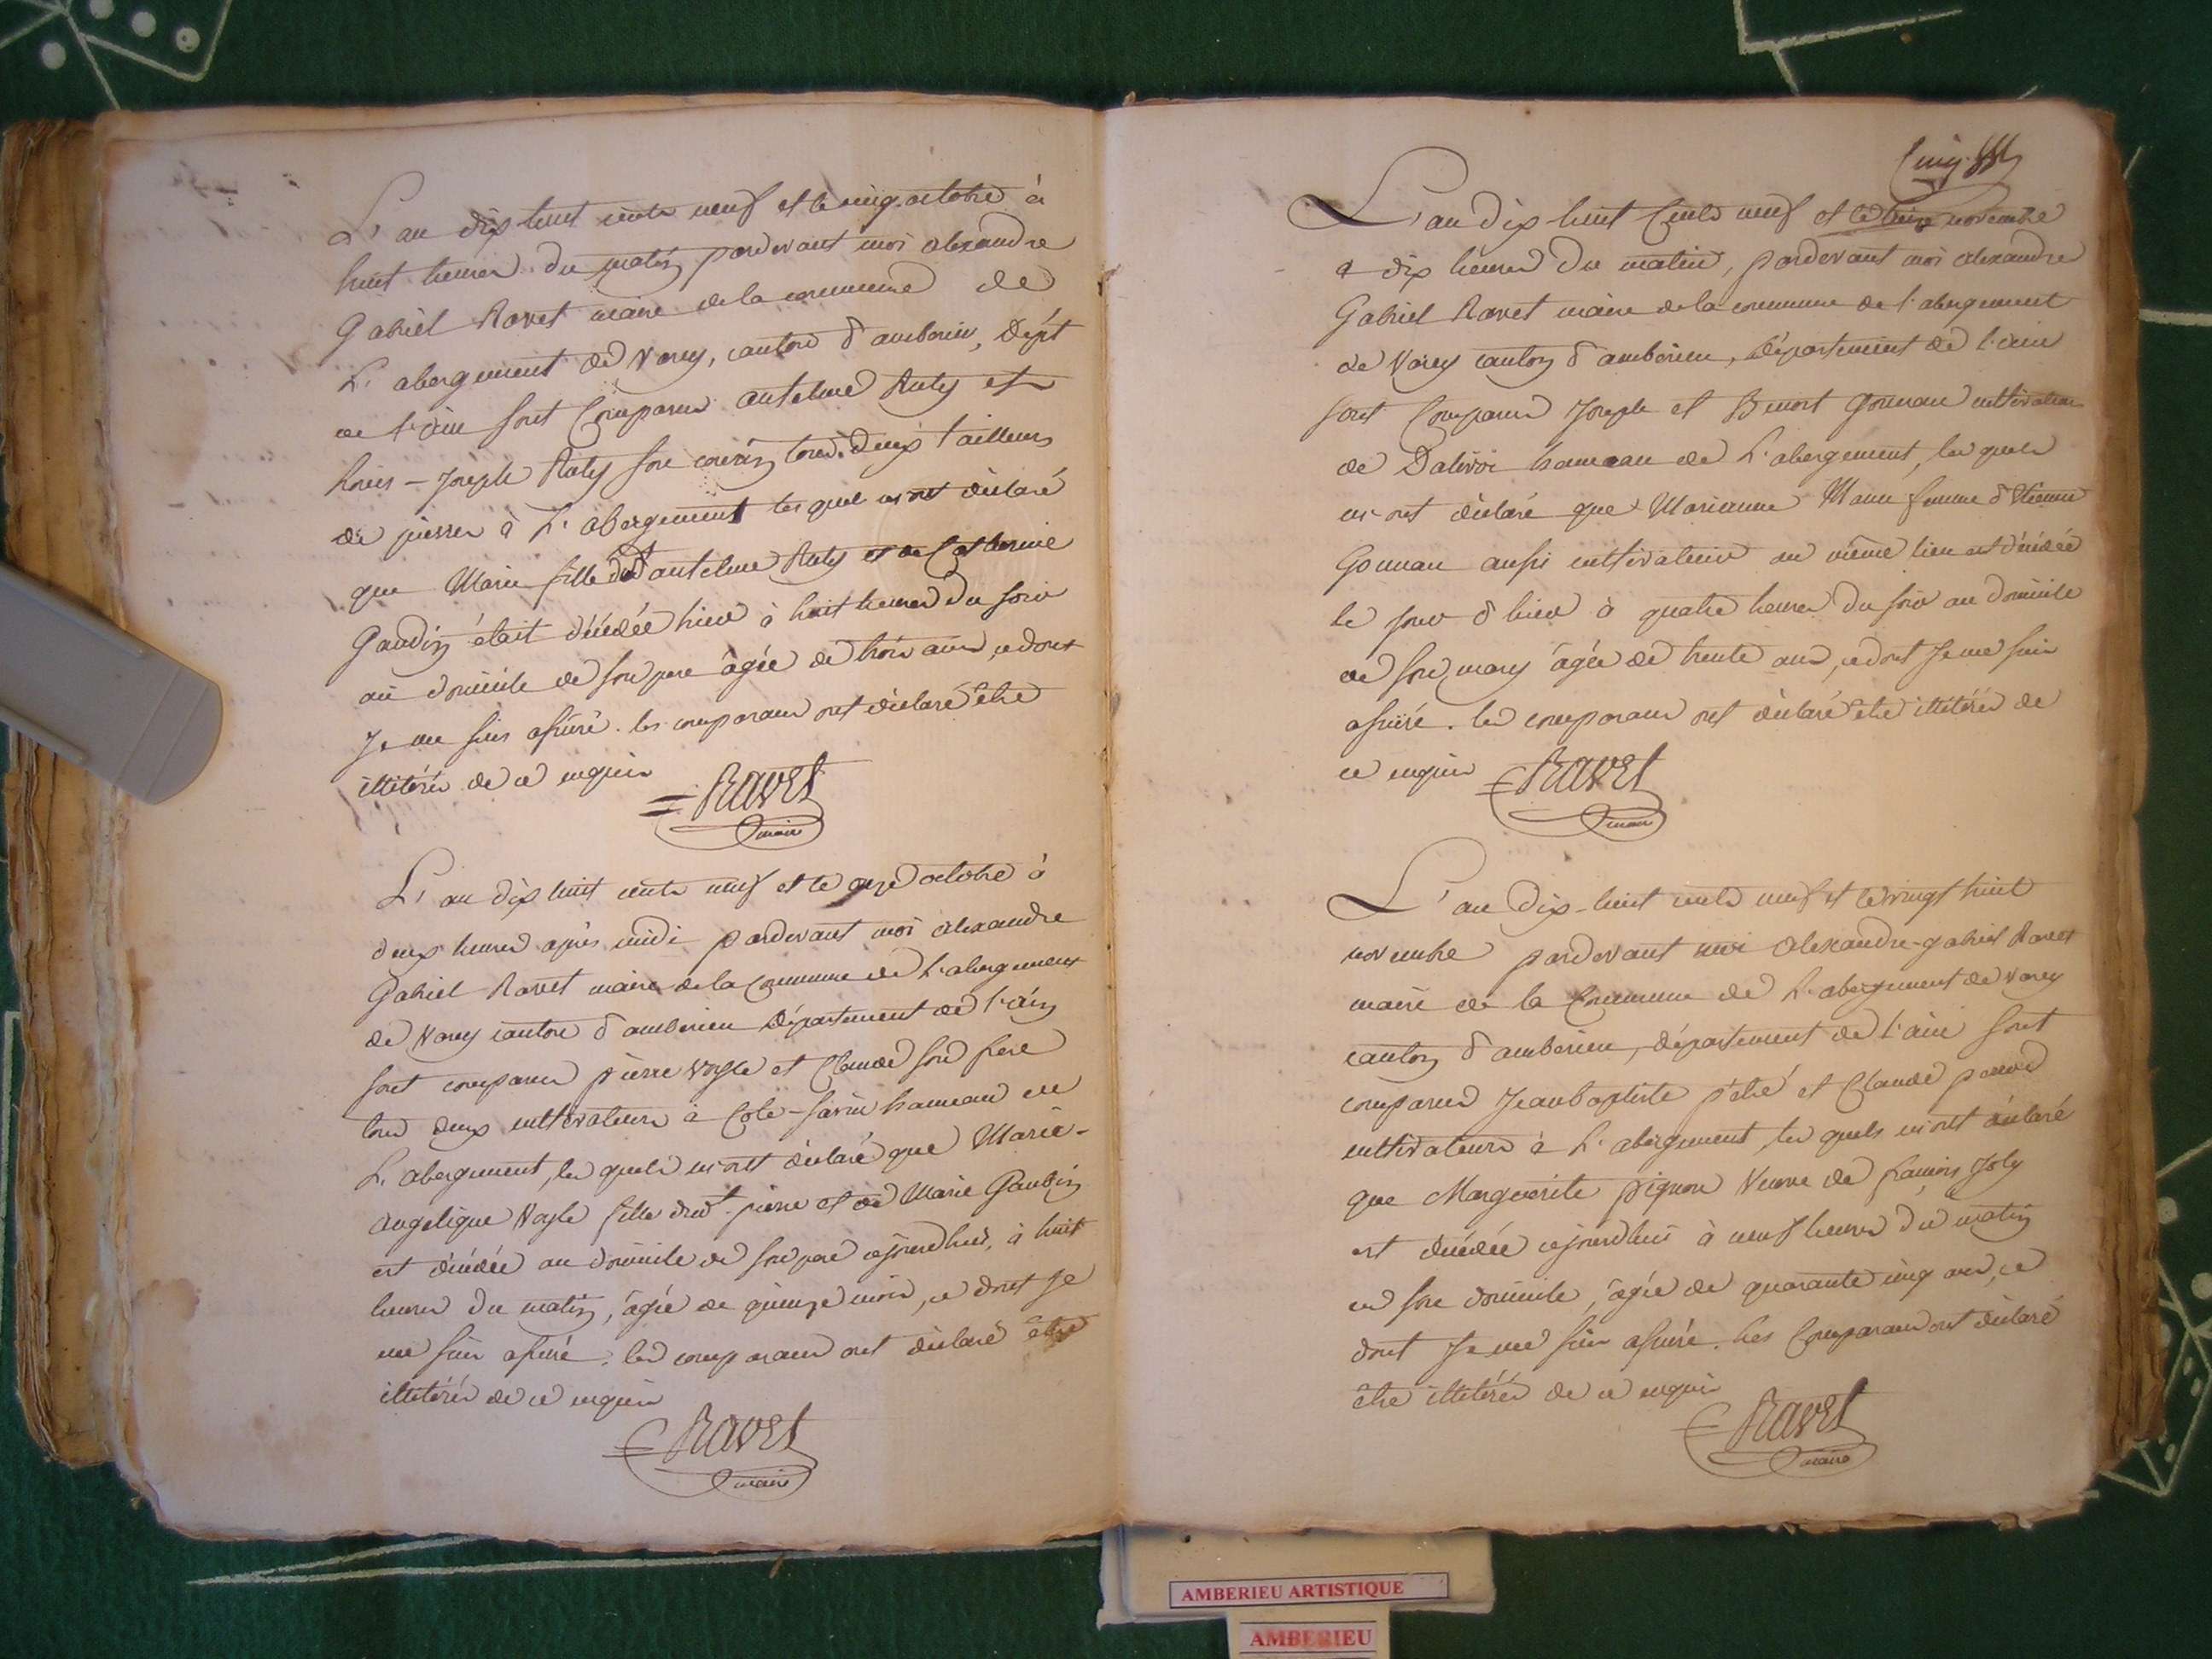 L'an dix huit cents neuf et le cinq octobre à
huit heures du matin pardevant moi alexandre
Gabriel Ravet maire de la commune de
L'abergement de Varey, canton d'amberieu, Dépt
de l'ain sont Comparus anthelme Ruty et
Louis-Joseph Ruty son cousin tous deux tailleurs
de pierres à L'abergement lesquels m'ont déclaré
que Marie fille dudt anthelme Ruty et de Catherine
Gaudin était décédée hier à huit heures du soir
au domicile de son pere âgée de trois ans, ce dont
Je me suis assuré. les comparans ont déclaré être
illitérés de ce enquis
RAVET
maire
L'an dix huit cents neuf et le onze octobre à
deux heures après midi pardevant moi alexandre
Gabriel Ravet maire de la Commune de L'abergement
de Varey canton d'amberieu Département de l'ain
sont comparus pierre Vogle et Claude son frere
tous deux cultivateurs à Côte-savin hameau de
L'abergement, les quels m'ont déclaré que Marie-
angelique Vogle fille dudt. pierre et de Marie Gaudin
est décédée au domicile de son pere ajourdhui, à huit
heures du matin, âgée de quinze mois, ce dont Je
me suis assuré. les comparans ont déclaré être
illitérés de ce enquis
RAVET
maire
Cinq
L'an dix huit Cents neuf et le novembre
a dix heures du matin, pardevant moi alexandre
Gabriel Ravet maire de la commune de l'abergement
de Varey canton d'amberieu, Département de l'ain
sont Comparus Joseph et Benoit Gonnau cultivateurs
de Dalivoi hameau de L'abergement, les quels
m'ont déclaré que Marianne femme d'Etienne
Gonnau aussi cultivateur au même lieu est décédée
le jour d'hier à quatre heures du soir au domicile
de son mary âgée de trente ans, ce dont Je me suis
assuré. les comparans ont déclaré être illitérés de
ce enquis
RAVET
maire
L'an dix-huit cents neuf et le vingt huit
novembre pardevant moi Alexandre-gabriel Ravet
maire de la Commune de L'abergement de varey
canton d'amberieu, département de l'ain sont
comparus Jean baptiste pétré et Claude
cultivateurs à L'abergement, les quels m'ont déclaré
que Marguerite pignon Veuve de francois Joly
est décédée ajourdhui à neuf heures du matin
en son domicile, âgée de quarante cinq ans, ce
dont Je me suis assuré. Les Comparans ont déclaré
être illitérés de ce enquis
RAVET
maire
AMBERIEU ARTISTIQUE
AMBERIEU